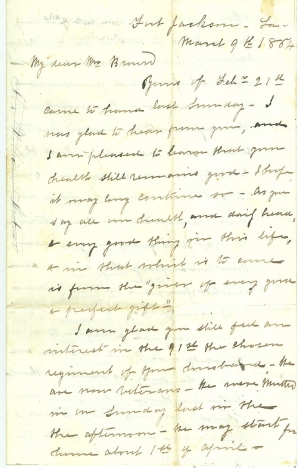 Fort Jackson - La -
March 9th 1864
My dear Mrs
Yours of Feb. 21st
came to hand last Sunday - I
was glad to hear from you, and
I am pleased to learn that your
health still remains good - I hope
it may long continue so - As you
say all our health, and daily bread,
& every good thing in this life,
& in that which is to come
is from the "giver of every good
& perfect gift"
I am glad you still feel an
interest in the 91st the chosen
regiment of your husband - We
are now Veterans - We were mustered
in on Sunday last in the
the afternoon - We may start for
home about 1st of April -